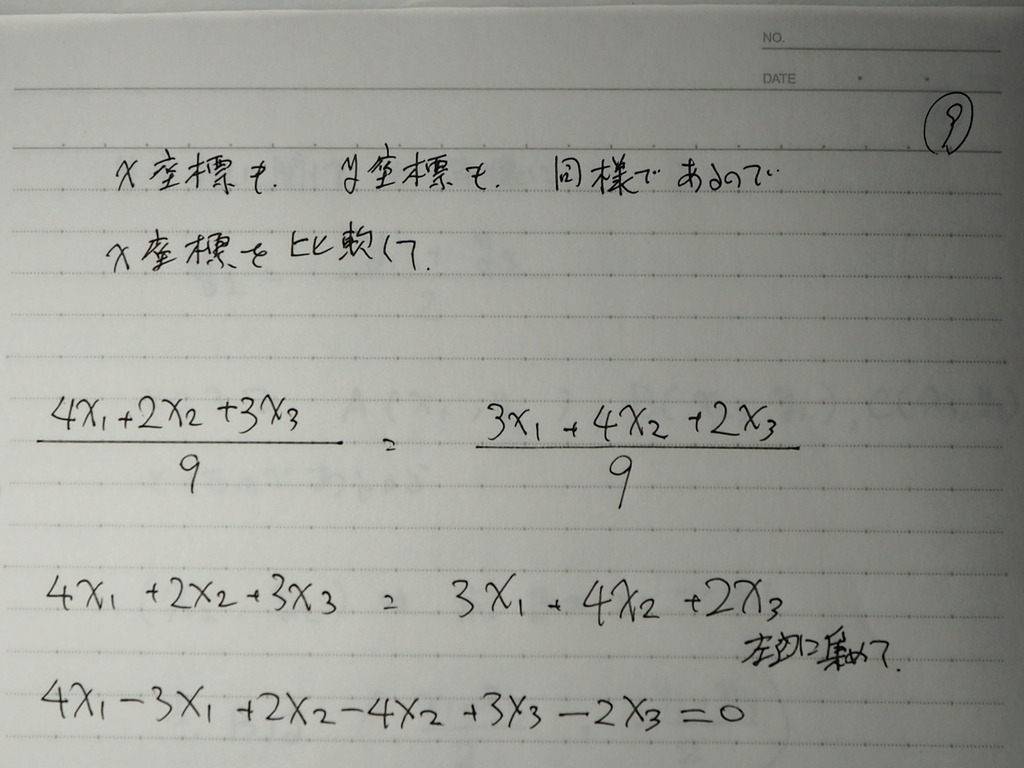 NO.
DATE
⑨
x座標も、y座標も、同様であるので
x座標を比較して、
4x₁+2x₂+3x₃/9 = 3x₁+4x₂+2x₃/9
4x₁+2x₂+3x₃ = 3x₁+4x₂+2x₃
左辺に集めて、
4x₁-3x₁+2x₂-4x₂+3x₃-2x₃=0